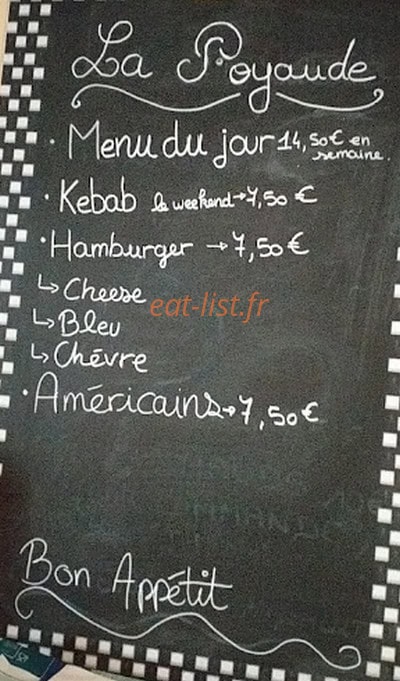 La Poyaude
· Menu du jour 14,50€ en semaine.
· Kebab le weekend → 7,50 €
· Hamburger → 7,50 €
↳ Cheese
eat-list.fr
↳ Bleu
↳ Chévre
· Américains → 7,50 €
Bon Appétit